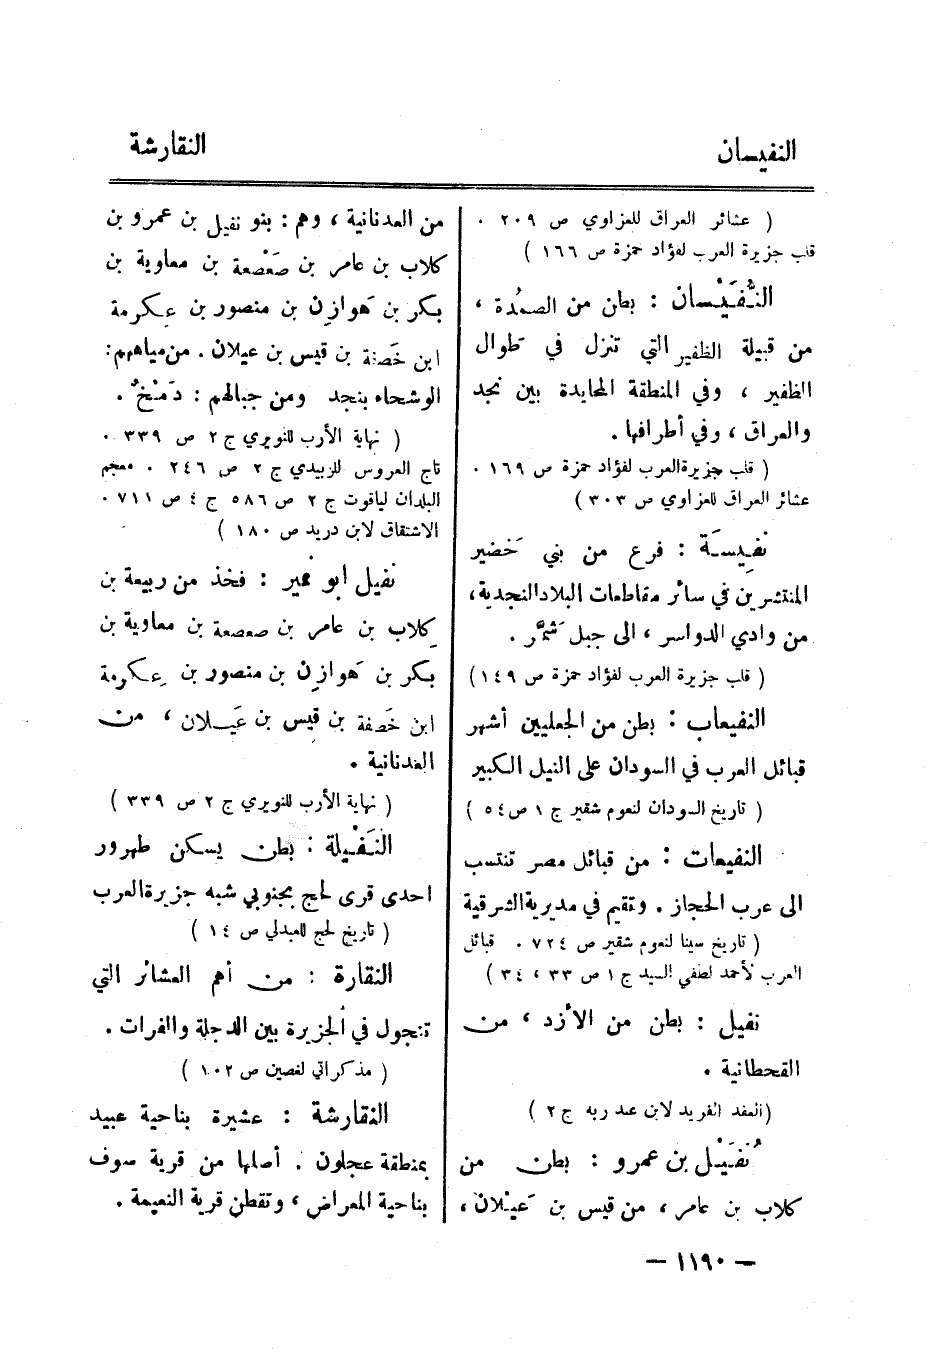 النفيسان
النقارشة
( عشائر العراق للعزاوي ص ٢٠٩ .
قلب جزيرة العرب لفؤاد حمزة ص ١٦٦ )
النُّفَيْسان : بطن من الصمُدة ،
من قبيلة الظفير التي تنزل في طوال
الظفير ، وفي المنطقة المحايدة بين نجد
والعراق ، وفي أطرافها .
( قلب جزيرة العرب لفؤاد حمزة ص ١٦٩ .
عشائر العراق للعزاوي ص ٣٠٣ )
نفِيسَة : فرع من بني خَضير
المنتشرين في سائر مقاطعات البلاد النجدية ،
من وادي الدواسر ، الى جبل شمَّر .
( قلب جزيرة العرب لفؤاد حمزة ص ١٤٩ )
النفيعاب : بطن من الجعليين أشهر
قبائل العرب في السودان على النيل الكبير
( تاريخ السودان لنعوم شقير ج ١ ص ٥٤ )
النفيعات : من قبائل مصر تنتسب
الى عرب الحجاز . وتقيم في مديرية الشرقية
( تاريخ سينا لنعوم شقير ص ٧٢٤ . قبائل
العرب لأحمد لطفي السيد ج ١ ص ٣٣ ، ٣٤ )
نفيل : بطن من الأزد ، من
القحطانية .
( العقد الفريد لابن عبد ربه ج ٢ )
نُفَيْل بن عمرو : بطن من
كلاب بن عامر ، من قيس بن عَيْلان ،
من العدنانية ، وهم : بنو نفيل بن عمرو بن
كلاب بن عامر بن صَعْصعة بن معاوية بن
بكر بن هَوازِن بن منصور بن عِكرمة
ابن خَصَفة بن قيس بن عيلان . من مياههم :
الوشحاء بنجد ومن جبالهم : دَمْخٌ .
( نهاية الأرب للنويري ج ٢ ص ٣٣٩ .
تاج العروس للزبيدي ج ٢ ص ٢٤٦ . معجم
البلدان لياقوت ج ٢ ص ٥٨٦ ج ٤ ص ٧١١ .
الاشتقاق لابن دريد ص ١٨٠ )
نفيل أبو نمير : فخذ من ربيعة بن
كِلاب بن عامر بن صعصعة بن معاوية بن
بكر بن هَوازِن بن منصور بن عِكرمة
ابن خَصفة بن قيس بن عَيلان ، من
العدنانية .
( نهاية الأرب للنويري ج ٢ ص ٣٣٩ )
النَفْيلة : بطن يسكن طهرور
احدى قرى لحج بجنوبي شبه جزيرة العرب
( تاريخ لحج للعبدلي ص ١٤ )
النقارة : من أهم العشائر التي
تتجول في الجزيرة بين الدجلة والفرات .
( مذكراتي لغصين ص ١٠٢ )
النقارشة : عشيرة بناحية عبيد
بمنطقة عجلون . أصلها من قرية سوف
بناحية المعراض ، وتقطن قرية النعيمة .
– ١١٩٠ –